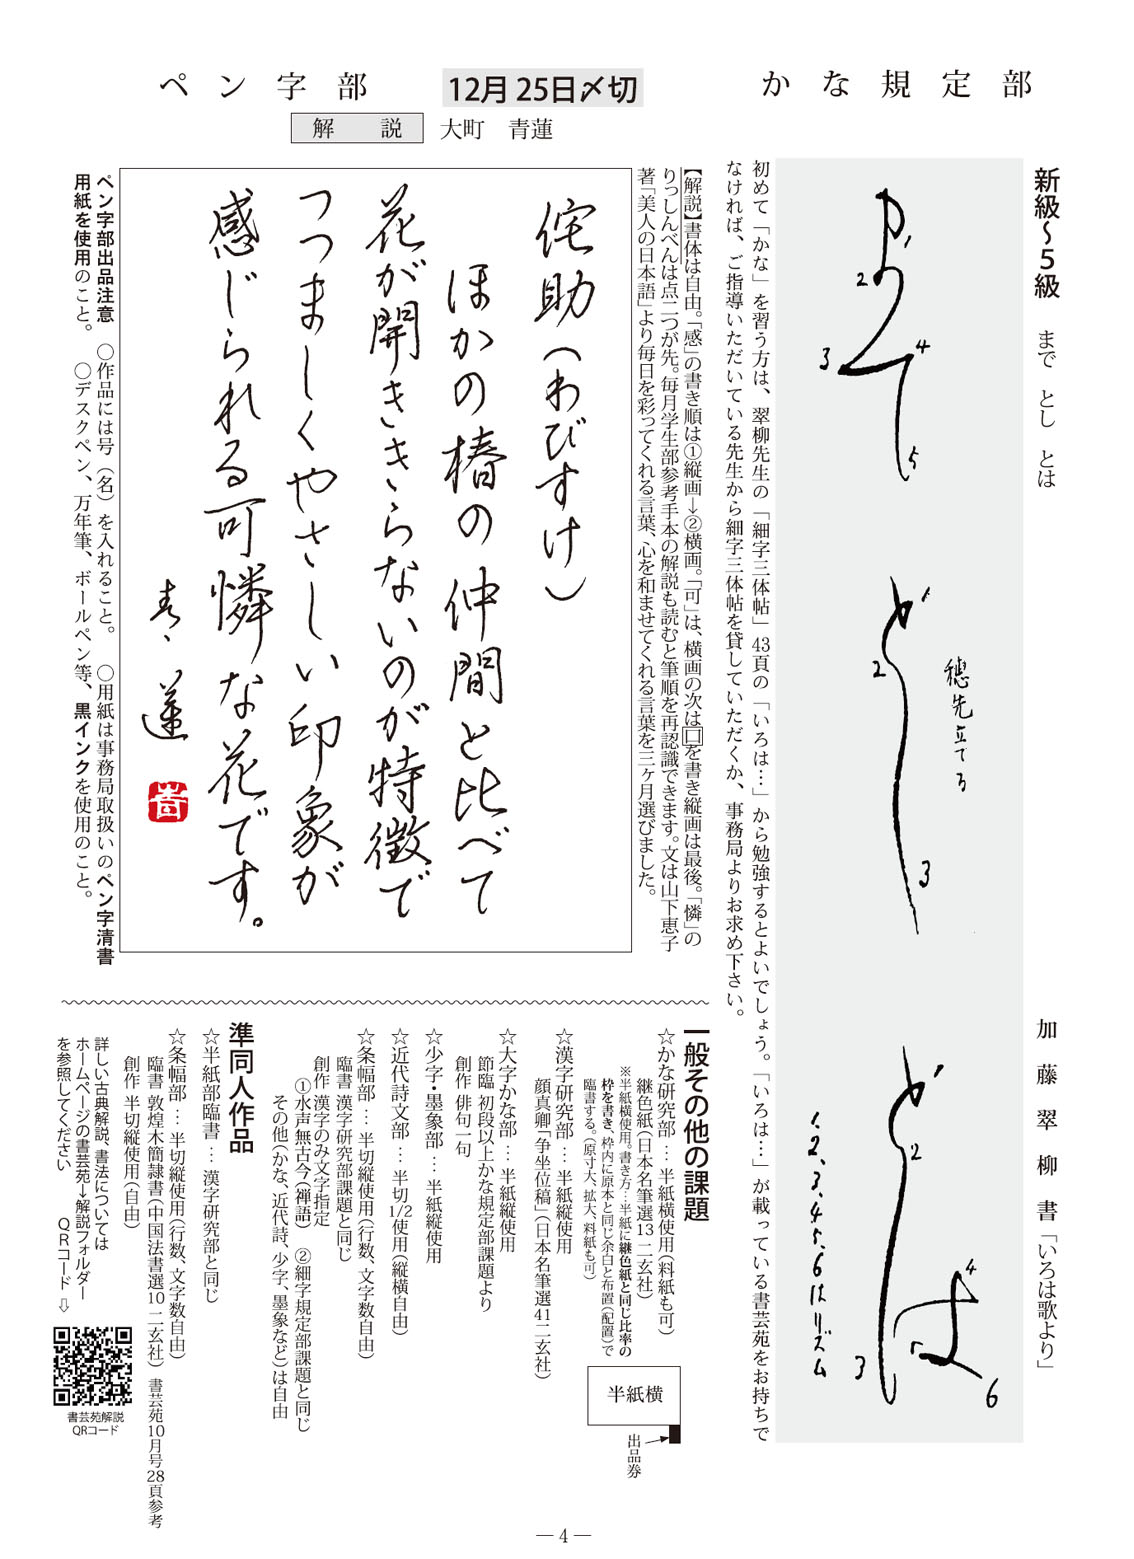 かな規定部
新級〜5級　まで　とし　とは
加藤翠柳書「いろは歌より」
まで
とし
とは
穂先立てる
1.2.3.4.5.6はリズム
初めて「かな」を習う方は、翠柳先生の「細字三体帖」43頁の「いろは…」から勉強するとよいでしょう。「いろは…」が載っている書芸苑をお持ちで
なければ、ご指導いただいている先生から細字三体帖を貸していただくか、事務局よりお求め下さい。
12月25日〆切
ペン字部
解説　大町　青蓮
【解説】書体は自由。「感」の書き順は①縦画→②横画。「可」は、横画の次は口を書き縦画は最後。「憐」の
りっしんべんは点二つが先。毎月学生部参考手本の解説も読むと筆順を再認識できます。文は山下恵子
著「美人の日本語」より毎日を彩ってくれる言葉、心を和ませてくれる言葉を三ヶ月選びました。
侘助（わびすけ）
ほかの椿の仲間と比べて
花が開ききらないのが特徴で
つつましくやさしい印象が
感じられる可憐な花です。
青蓮
ペン字部出品注意　○作品には号（名）を入れること。　○用紙は事務局取扱いのペン字清書
用紙を使用のこと。　○デスクペン、万年筆、ボールペン等、黒インクを使用のこと。
一般その他の課題
☆かな研究部…半紙横使用（料紙も可）
継色紙（日本名筆選13 二玄社）
※半紙横使用。書き方…半紙に継色紙と同じ比率の
枠を書き、枠内に原本と同じ余白と布置（配置）で
臨書する。（原寸大、拡大、料紙も可）
半紙横
出品券
☆漢字研究部…半紙縦使用
顔真卿「争坐位稿」（日本名筆選41二玄社）
☆大字かな部…半紙縦使用
節臨 初段以上かな規定部課題より
創作 俳句一句
☆少字・墨象部…半紙縦使用
☆近代詩文部…半切1/2使用（縦横自由）
☆条幅部…半切縦使用（行数、文字数自由）
臨書 漢字研究部課題と同じ
創作 漢字のみ文字指定
①水声無古今（禅語）　②細字規定部課題と同じ
その他（かな、近代詩、少字、墨象など）は自由
準同人作品
☆半紙部臨書…漢字研究部と同じ
☆条幅部…半切縦使用（行数、文字数自由）
臨書 敦煌木簡隷書（中国法書選10 二玄社） 書芸苑10月号28頁参考
創作 半切縦使用（自由）
詳しい古典解説、書法については
ホームページの書芸苑→解説フォルダー
を参照してください　QRコード⇨
書芸苑解説
QRコード
― 4 ―